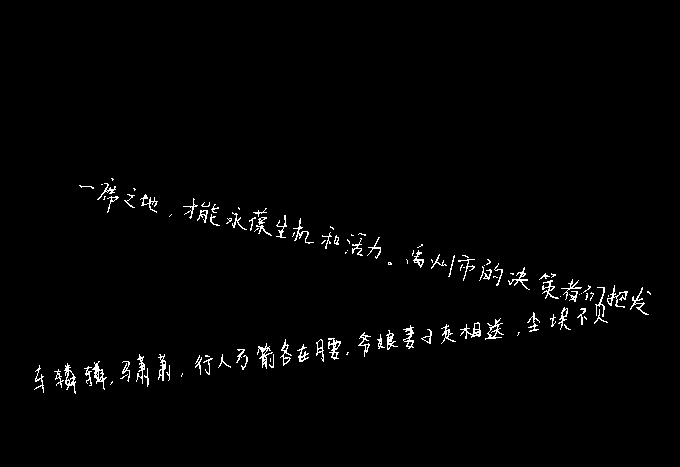 一席之地，才能永葆生机和活力。禹州市的决策者们把发
车辚辚，马萧萧，行人弓箭各在腰，爷娘妻子走相送，尘埃不见